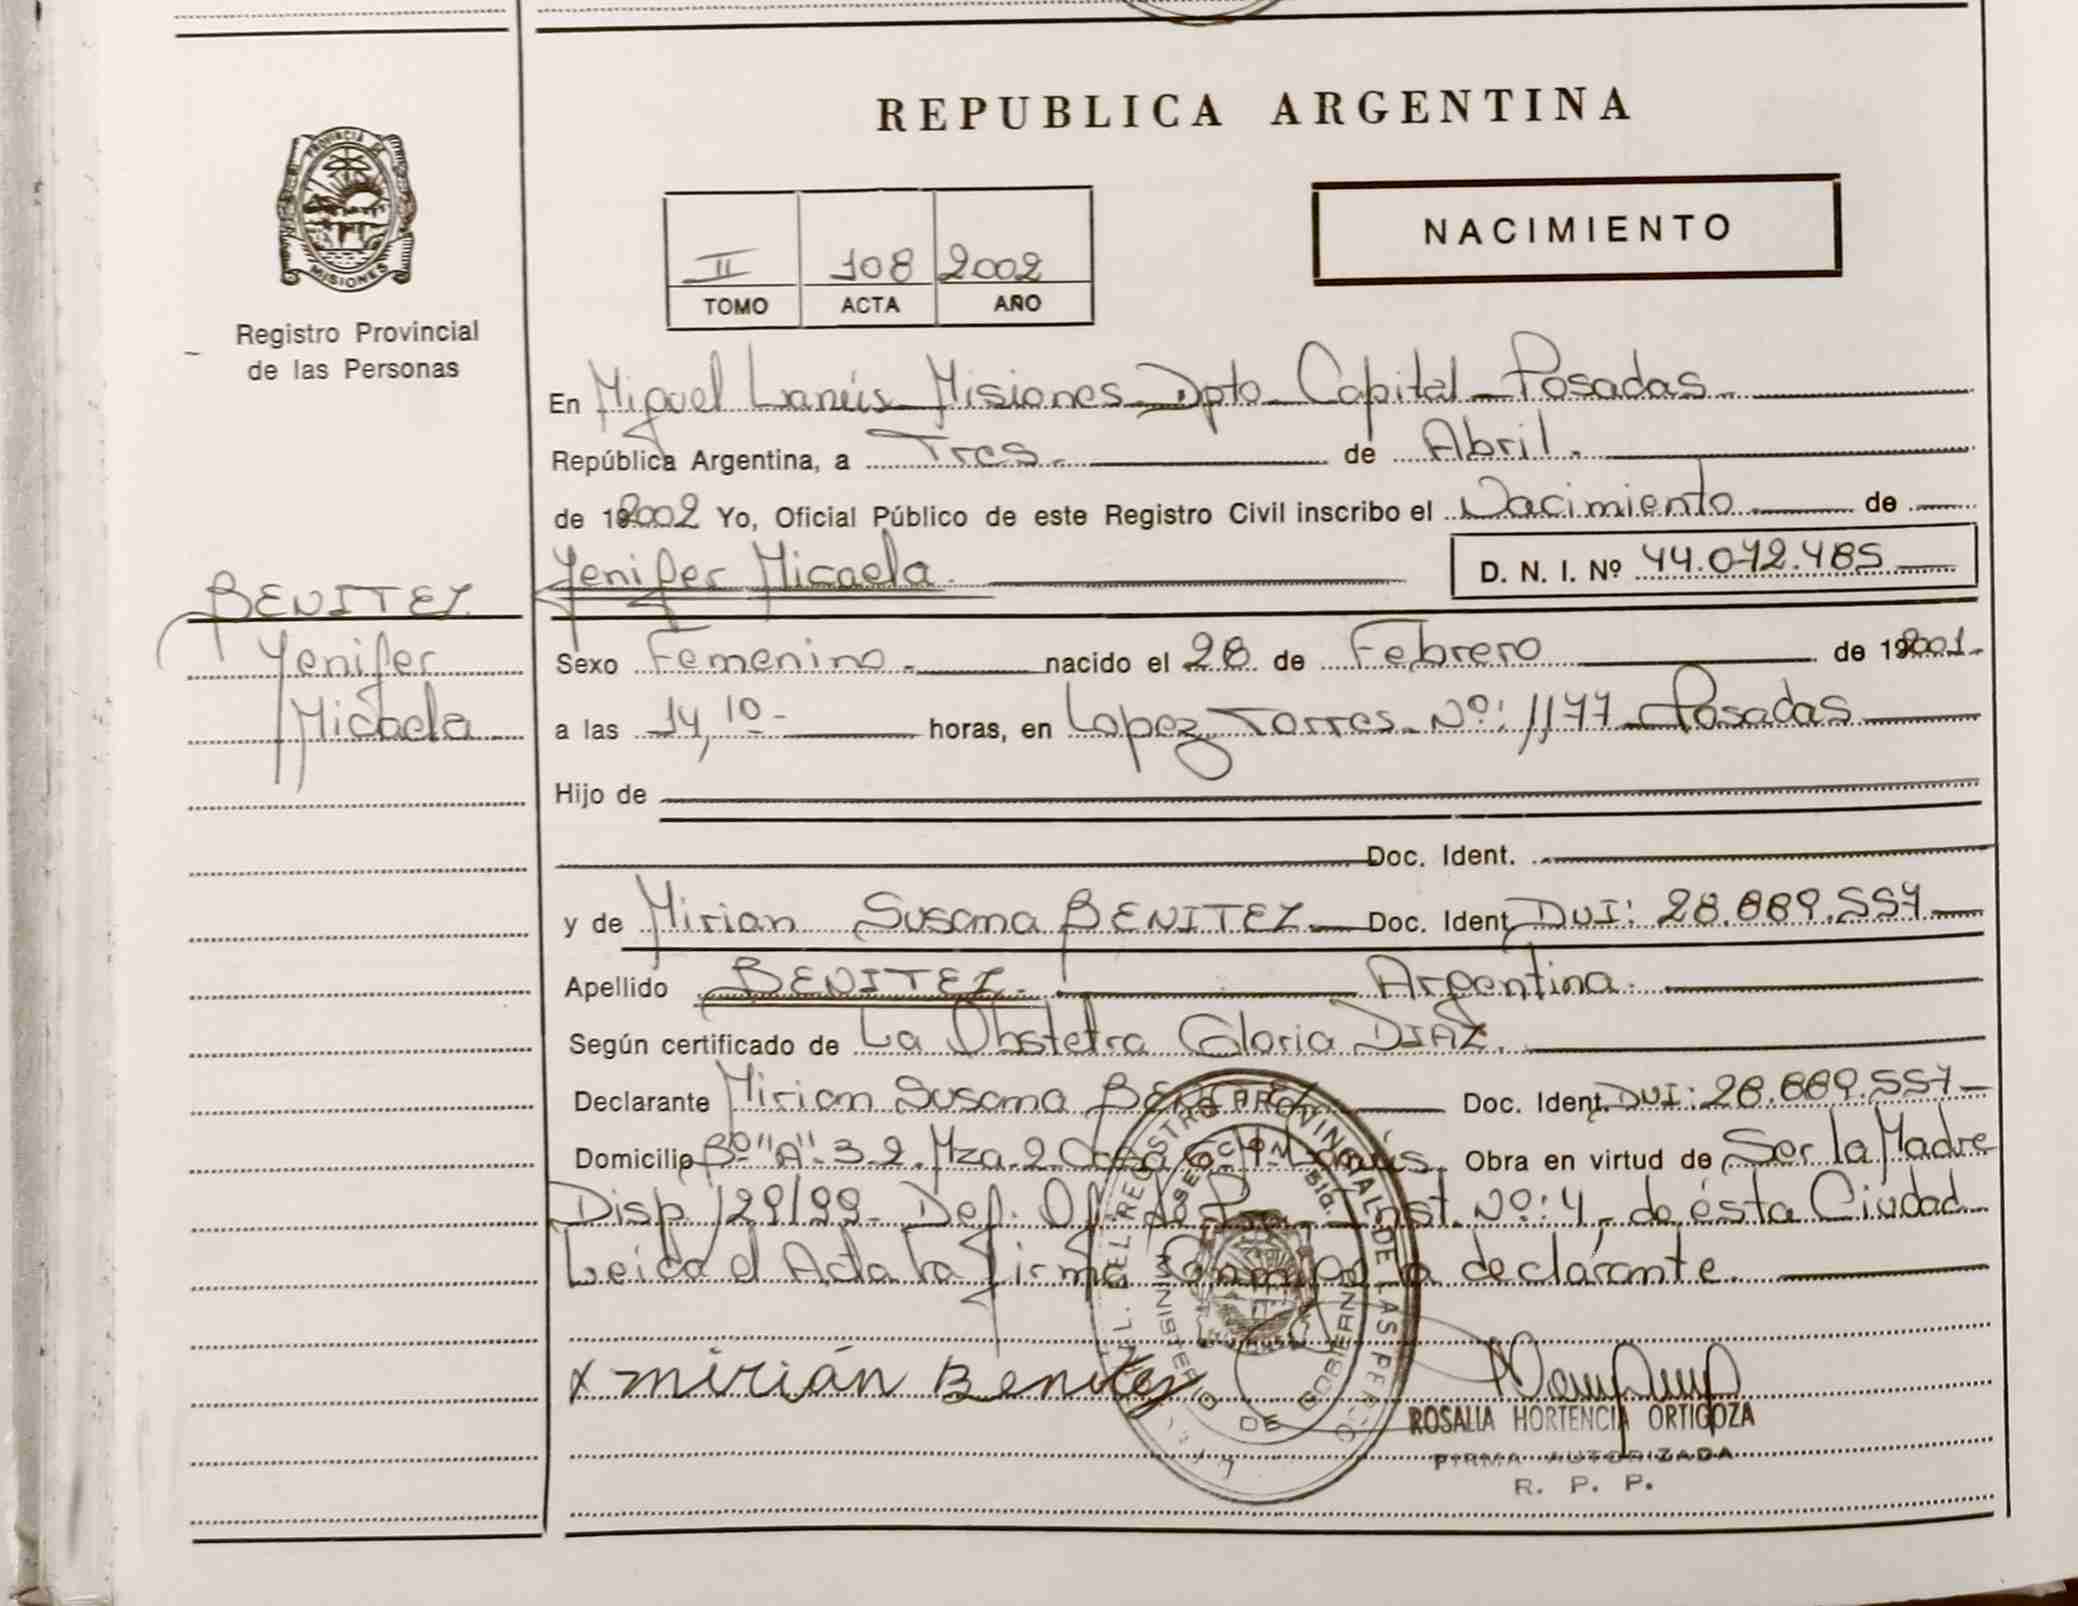 REPUBLICA ARGENTINA
PROVINCIA DE
MISIONES
Registro Provincial
de las Personas
NACIMIENTO
II 108 2002
TOMO ACTA AÑO
En Miguel Lanús Misiones Dpto Capital Posadas
República Argentina, a Tres de Abril.
de 192002 Yo, Oficial Público de este Registro Civil inscribo el Nacimiento de
Yenifer Micaela. D. N. I. Nº 44.072.485
BENITEZ
Yenifer
Micaela
Sexo Femenino nacido el 28 de Febrero de 192001.
a las 14,10 horas, en Lopez Torres Nº: 1177 Posadas
Hijo de
Doc. Ident.
y de Mirian Susana BENITEZ Doc. Ident. DUI: 28.889.557
Apellido BENITEZ. Argentina.
Según certificado de La Obstetra Gloria DIAZ.
Declarante Mirian Susana BENITEZ Doc. Ident. DUI: 28.889.557
Domicilio Bº "A" 3-2 Mza. 2 Lanús. Obra en virtud de Ser la Madre
Disp. 129/99 Def. Of. Inst. Nº: 4, de ésta Ciudad
Leida el Acta la firma la declarante.
x mirián Benitez
ROSALIA HORTENCIA ORTIGOZA
FIRMA AUTORIZADA
R. P. P.
DEL REGISTRO PROVINCIAL DE LAS PERSO
MINISTERIO DE GOBIERNO